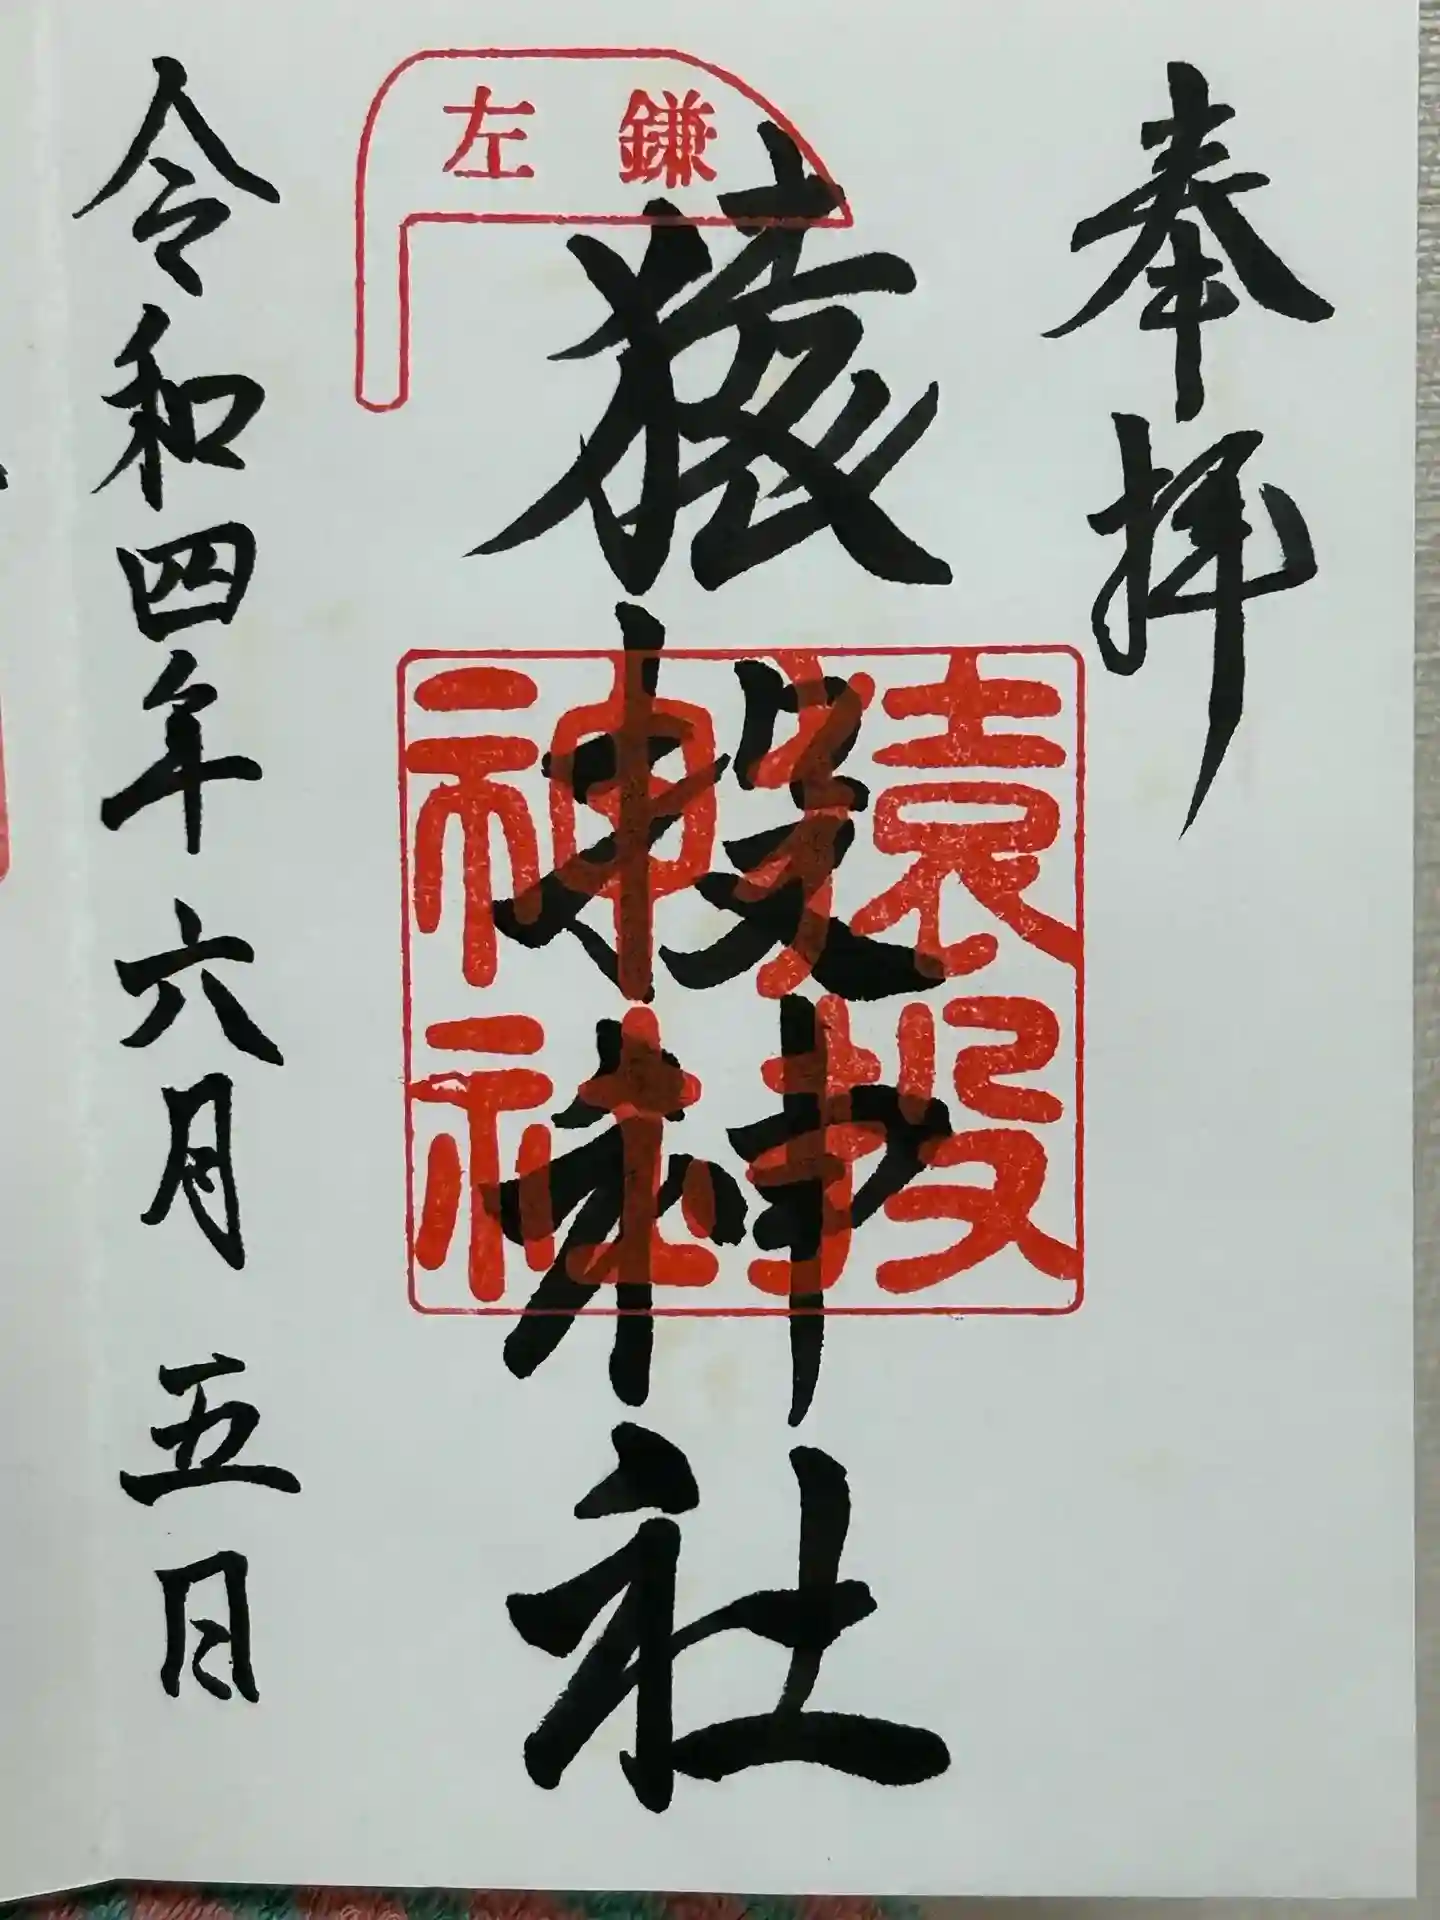 奉拝
猿投神社
左鎌
猿投
神社
令和四年六月五日